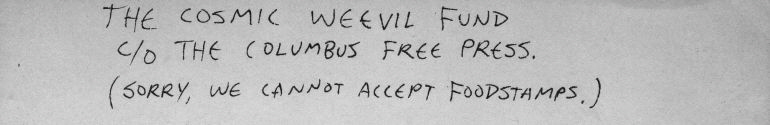 THE COSMIC WEEVIL FUND
C/O THE COLUMBUS FREE PRESS.
(SORRY, WE CANNOT ACCEPT FOODSTAMPS.)